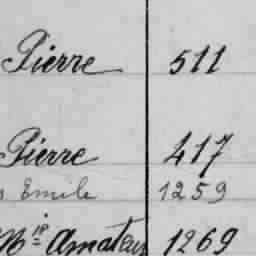 Pierre 511
Pierre 417
s Emile 1259
Mie Amateur 1269